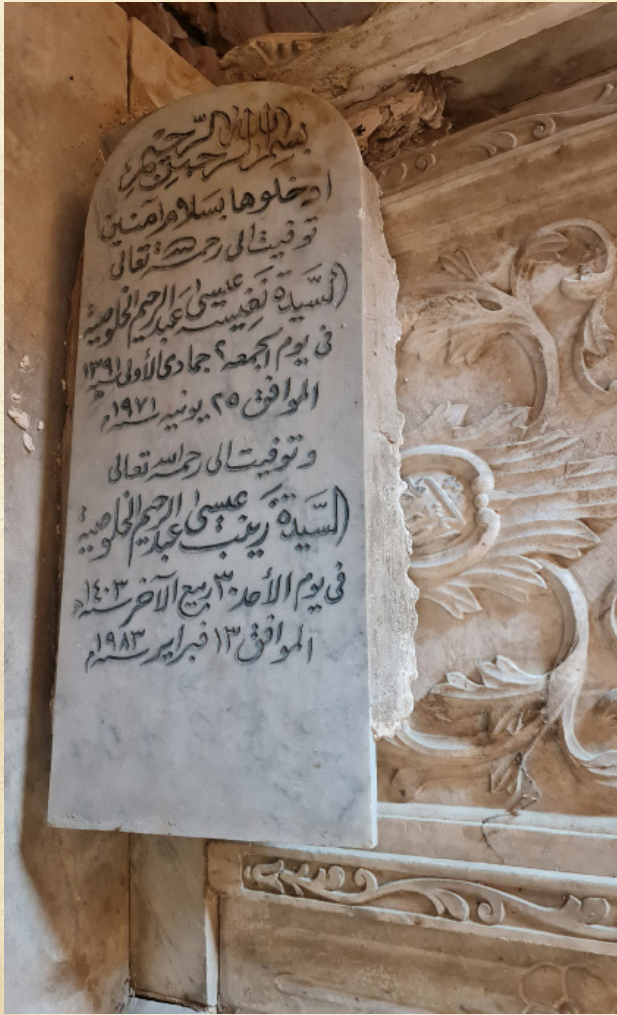 بسم الله الرحمن الرحيم
ادخلوها بسلام امنين
توفيت الى رحمة الله تعالى
السيدة نفيسه عيسى عبد الرحيم الخلوصية
فى يوم الجمعه ٢ جمادى الأولى سنة ١٣٩١ هـ
الموافق ٢٥ يونيه سنة ١٩٧١ م
وتوفيت الى رحمة الله تعالى
السيدة زينب عيسى عبد الرحيم الخلوصية
فى يوم الأحد ٣٠ ربيع الآخر سنة ١٤٠٣ هـ
الموافق ١٣ فبراير سنة ١٩٨٣ م